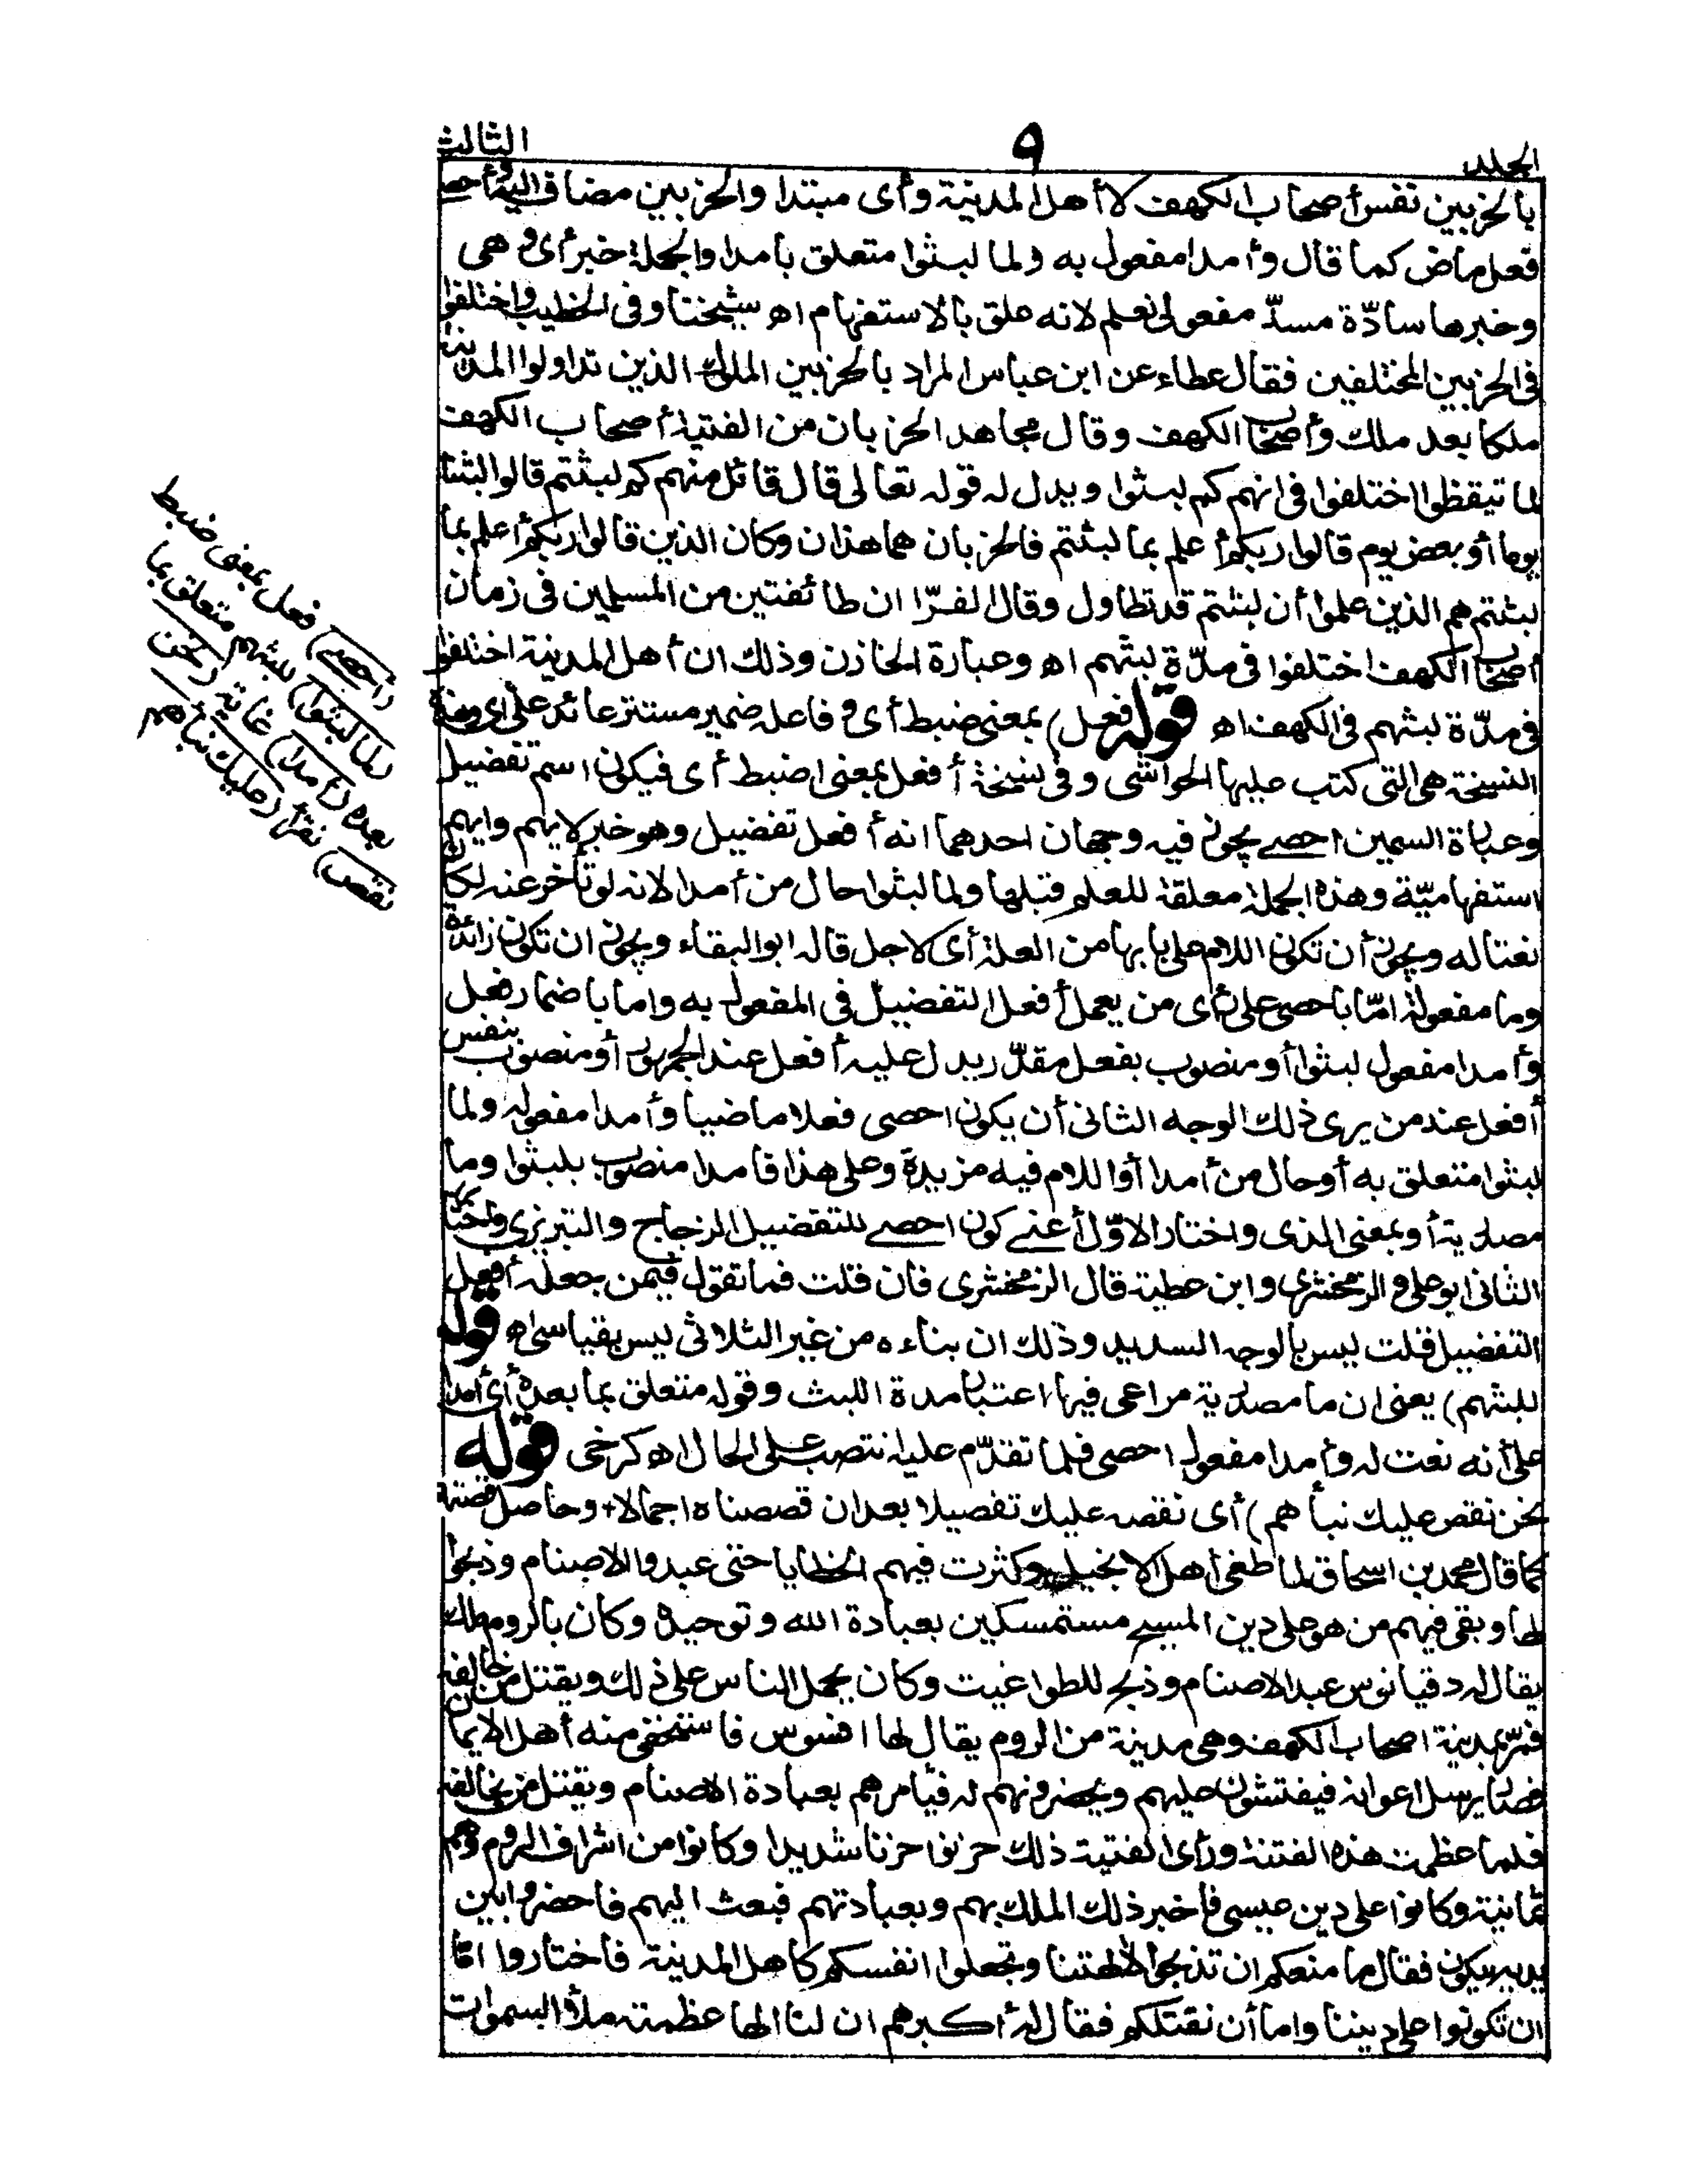 الجلد ٩ الثالث
بالحزبين نفس أصحاب الكهف لا أهل المدينة وأى مبتدا والحزبين مضاف اليه وأحصى
فعل ماض كما قال وأمدا مفعول به ولما لبثوا متعلق بامدا والجملة خبر أى وهى
وخبرها سادّة مسدّ مفعولى نعلم لانه علق بالاستفهام اه شيخنا وفى الخطيب واختلفوا
فى الحزبين المختلفين فقال عطاء عن ابن عباس المراد بالحزبين الملوك الذين تداولوا المدينة
ملكا بعد ملك وأصحاب الكهف وقال مجاهد الحزبان من الفتية أصحاب الكهف
لما تيقظوا اختلفوا فى انهم كم لبثوا ويدل له قوله تعالى قال قائل منهم كم لبثتم قالوا لبثنا
يوما أو بعض يوم قالوا ربكم أعلم بما لبثتم فالحزبان هما هذان وكان الذين قالوا ربكم أعلم بما
لبثتم هم الذين علموا أن لبثتم قد تطاول وقال الفرّا ان طائفتين من المسلمين فى زمان
أصحاب الكهف اختلفوا فى مدّة لبثهم اه وعبارة الخازن وذلك ان أهل المدينة اختلفوا
فى مدّة لبثهم فى الكهف اه قوله فعل) بمعنى ضبط أى وفاعله ضمير مستتر عائد على أى وهذه
النسخة هى التى كتب عليها الحواشى وفى نسخة أفعل بمعنى اضبط أى فيكون اسم تفضيل
وعبارة السمين احصى يجوز فيه وجهان احدهما انه أفعل تفضيل وهو خبر لايهم وايهم
استفهاميّة وهذه الجملة معلقة للعلم قبلها ولما لبثوا حال من أمدا لانه لو تأخر عنه لكان
نعتا له ويجوز أن تكون اللام على بابها من العلة أى لاجل قاله ابو البقاء ويجوز ان تكون زائدة
وما مفعولة امّا باحصى على رأى من يعمل أفعل التفضيل فى المفعول به واما باضمار فعل
وأمدا مفعول لبثوا أو منصوب بفعل مقدّر يدل عليه أفعل عند الجمهور أو منصوب بنفس
أفعل عند من يرى ذلك الوجه الثانى أن يكون احصى فعلا ماضيا وأمدا مفعوله ولما
لبثوا متعلق به أو حال من أمدا أو اللام فيه مزيدة وعلى هذا فامدا منصوب بلبثوا وما
مصدرية أو بمعنى الذى واختار الاوّل أعنى كون احصى للتفضيل الزجاج والتبريزى واختار
الثانى ابو على والزمخشرى وابن عطية قال الزمخشرى فان قلت فما تقول فيمن جعله أفعل
التفضيل قلت ليس بالوجه السديد وذلك ان بناءه من غير الثلاثى ليس بقياسى اه قوله
للبثهم) يعنى ان ما مصدرية مراعى فيها اعتبار مدة اللبث وقوله متعلق بما بعده أى أمدا
على أنه نعت له وأمدا مفعول احصى فلما تقدّم عليه انتصب على الحال اه كرخى قوله
نحن نقص عليك نبأهم) أى نقصه عليك تفصيلا بعد ان قصصناه اجمالا وحاصل قصته
كما قال محمد بن اسحاق لما طغى أهل الانجيل وكثرت فيهم الخطايا حتى عبدوا الاصنام وذبحوا
لها وبقى فيهم من هو على دين المسيح مستمسكين بعبادة الله وتوحيده وكان بالروم ملك
يقال له دقيانوس عبد الاصنام وذبح للطواغيت وكان يحمل الناس على ذلك ويقتل من خالفه
فمرّ بمدينة اصحاب الكهف وهى مدينة من الروم يقال لها افسوس فاستخفى منه أهل الايمان
فصار يرسل اعوانه فيفتشون عليهم ويحضرونهم له فيأمرهم بعبادة الاصنام ويقتل من يخالفه
فلما عظمت هذه الفتنة ورأى الفتية ذلك حزنوا حزنا شديدا وكانوا من اشراف الروم وهم
ثمانية وكانوا على دين عيسى فأخبر ذلك الملك بهم وبعبادتهم فبعث اليهم فاحضروا بين
يديه يبكون فقال ما منعكم ان تذبحوا لآلهتنا وتجعلوا انفسكم كاهل المدينة فاختاروا امّا
ان تكونوا على ديننا واما أن نقتلكم فقال له أكبرهم ان لنا الها عظمته ملأ السموات
(أحصى) فعل بمعنى ضبط
(لما لبثوا) للبثهم متعلق بما
بعده (أمدا) غاية (نحن
نقص) نقرأ (عليك نبأهم